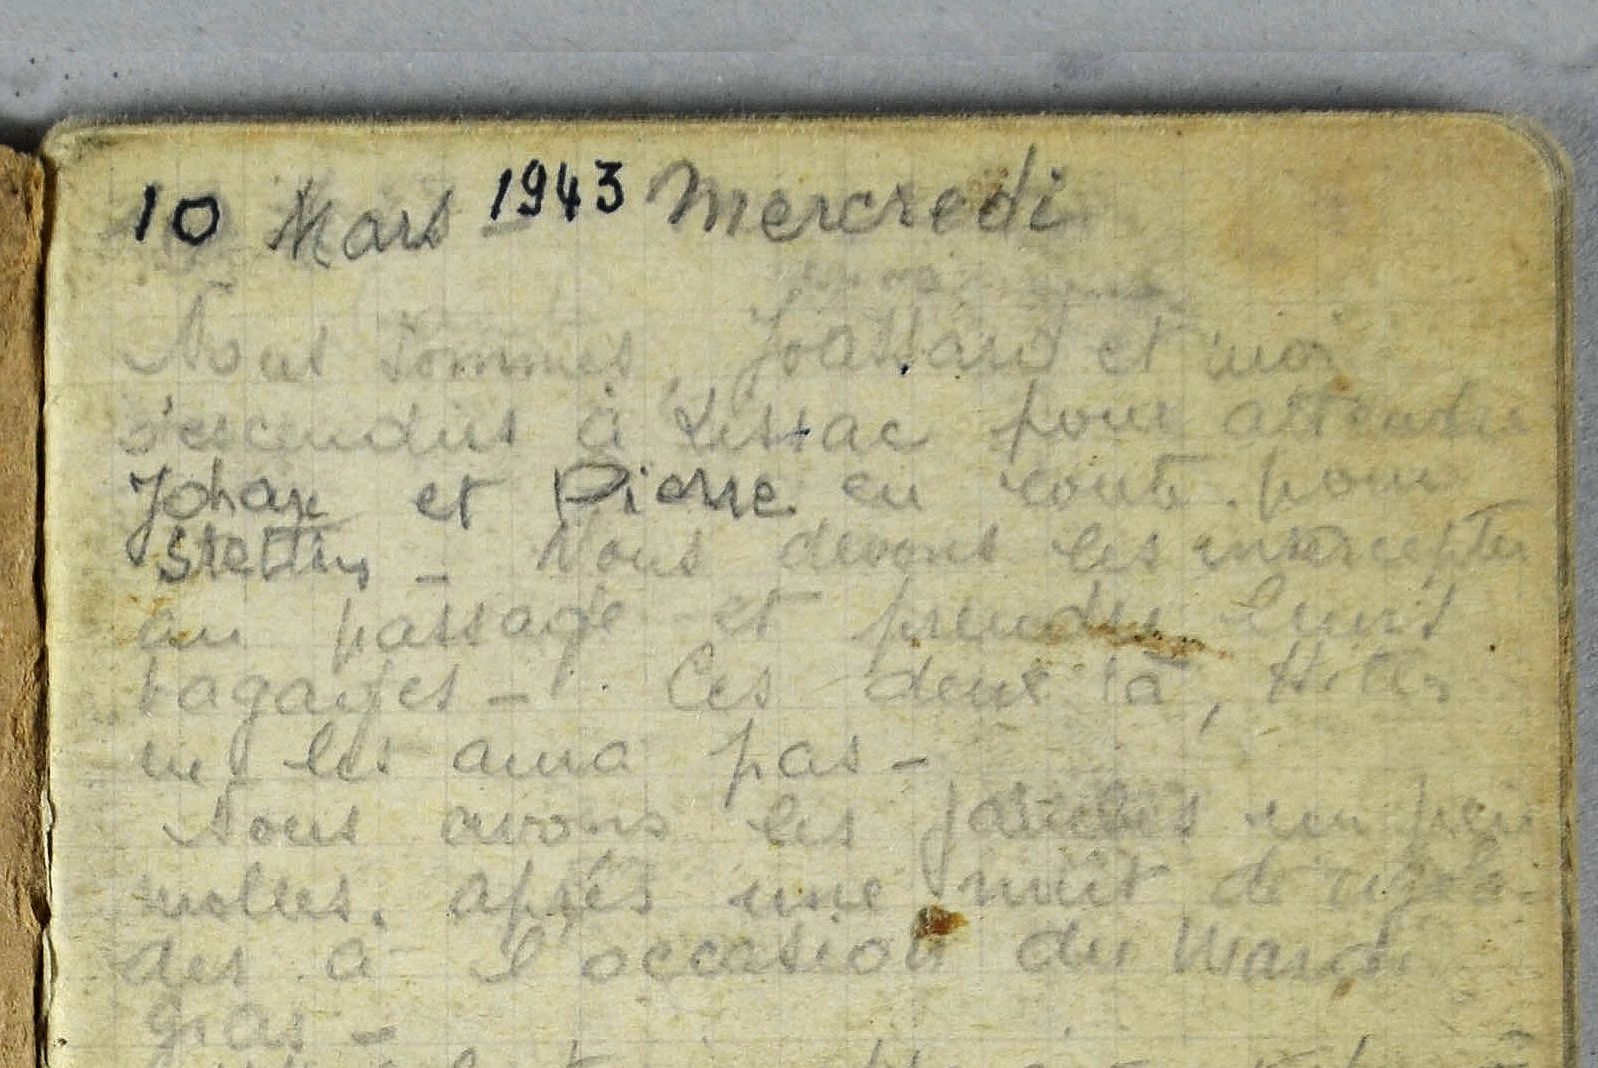 10 Mars 1943 Mercredi
Nous sommes, Joassard et moi
descendus à Lissac pour attendre
Johan et Pierre en route pour
Stettin - Nous devons les intercepter
au passage et prendre leurs
bagages - Ces deux là, Hitler
ne les aura pas -
Nous avons les jambes un peu
molles, après une nuit de rigola-
des à l'occasion du Mardi
gras -